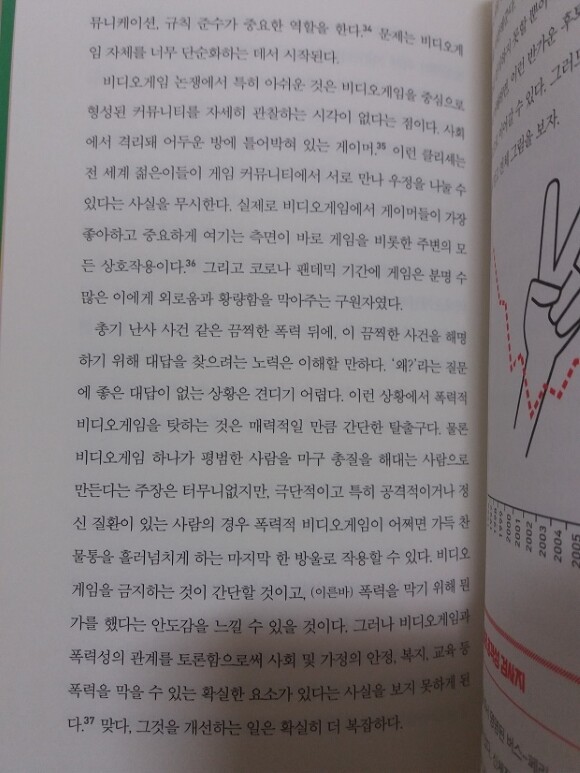 뮤니케이션, 규칙 준수가 중요한 역할을 한다.³⁴ 문제는 비디오게
임 자체를 너무 단순화하는 데서 시작된다.
비디오게임 논쟁에서 특히 아쉬운 것은 비디오게임을 중심으로
형성된 커뮤니티를 자세히 관찰하는 시각이 없다는 점이다. 사회
에서 격리돼 어두운 방에 틀어박혀 있는 게이머.³⁵ 이런 클리셰는
전 세계 젊은이들이 게임 커뮤니티에서 서로 만나 우정을 나눌 수
있다는 사실을 무시한다. 실제로 비디오게임에서 게이머들이 가장
좋아하고 중요하게 여기는 측면이 바로 게임을 비롯한 주변의 모
든 상호작용이다.³⁶ 그리고 코로나 팬데믹 기간에 게임은 분명 수
많은 이에게 외로움과 황량함을 막아주는 구원자였다.
총기 난사 사건 같은 끔찍한 폭력 뒤에, 이 끔찍한 사건을 해명
하기 위해 대답을 찾으려는 노력은 이해할 만하다. ‘왜?’라는 질문
에 좋은 대답이 없는 상황은 견디기 어렵다. 이런 상황에서 폭력적
비디오게임을 탓하는 것은 매력적일 만큼 간단한 탈출구다. 물론
비디오게임 하나가 평범한 사람을 마구 총질을 해대는 사람으로
만든다는 주장은 터무니없지만, 극단적이고 특히 공격적이거나 정
신 질환이 있는 사람의 경우 폭력적 비디오게임이 어쩌면 가득 찬
물통을 흘러넘치게 하는 마지막 한 방울로 작용할 수 있다. 비디오
게임을 금지하는 것이 간단할 것이고, (이른바) 폭력을 막기 위해 뭔
가를 했다는 안도감을 느낄 수 있을 것이다. 그러나 비디오게임과
폭력성의 관계를 토론함으로써 사회 및 가정의 안정, 복지, 교육 등
폭력을 막을 수 있는 확실한 요소가 있다는 사실을 보지 못하게 된
다.³⁷ 맞다, 그것을 개선하는 일은 확실히 더 복잡하다.
이런 반가운 후보
수 있다. 그러나
그림을 보자.
1999
2000
2001
2002
2003
2004
2005